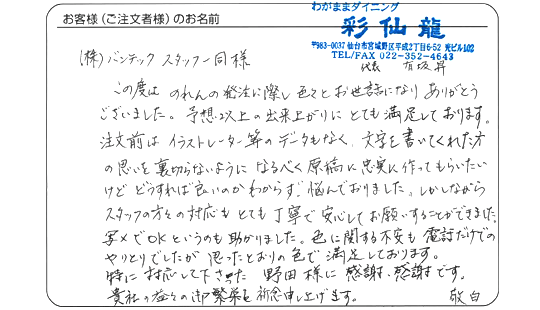 お客様(ご注文者様)のお名前
わがままダイニング
彩仙龍
〒983-0037 仙台市宮城野区平成2丁目6-52 光ビル102
TEL/FAX 022-352-4643
代表 有坂 昇
(株)バンテック スタッフ一同様
この度は のれんの発注に際し 色々とお世話になり ありがとう
ございました。予想以上の出来上がりに とても満足しております。
注文前は イラストレーター等のデータもなく、文字を書いてくれた方
の思いを裏切らないように なるべく原稿に忠実に作ってもらいたい
けど どうすれば良いのかわからず 悩んでおりました。しかしながら
スタッフの方々の対応も とても丁寧で安心してお願いすることができました。
写メでOKというのも助かりました。色に関する不安も 電話だけでの
やりとりでしたが 思ったとおりの色で満足しております。
特に対応して下さった 野田様に感謝、感謝です。
貴社の益々の御繁栄を祈念申し上げます。 敬白